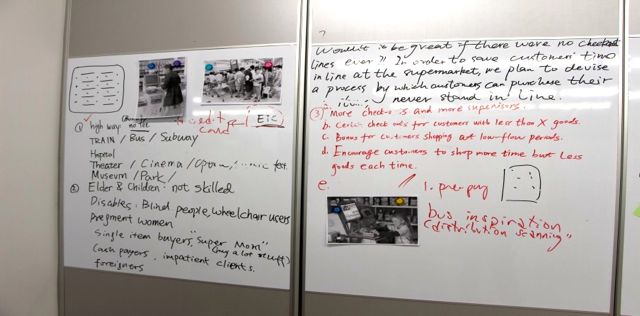 credit card
ETC
① high way no toll
TRAIN / Bus / Subway
Hospital
Theater / Cinema / Opera, music fest.
Museum / Park /
② Elder & Children: not skilled
Disables: Blind people, wheelchair users
Pregment women
Single item buyers, "Super Mom"
(buy a lot stuff)
Cash payers, impatient clients.
foreigners
Wouldn't be great if there were no checkout
lines ever? In order to save customers time
in line at the supermarket, we plan to devise
a process by which customers can purchase their
never stand in line.
③ More check-o is and more supervisors.
b. Certain check outs for customer with less than X goods.
c. Bonus for customers shopping at low-flow periods.
d. Encourage customers to shop more time but less
goods each time.
e.
1. pre-pay
bus inspiration
"distribution scanning"